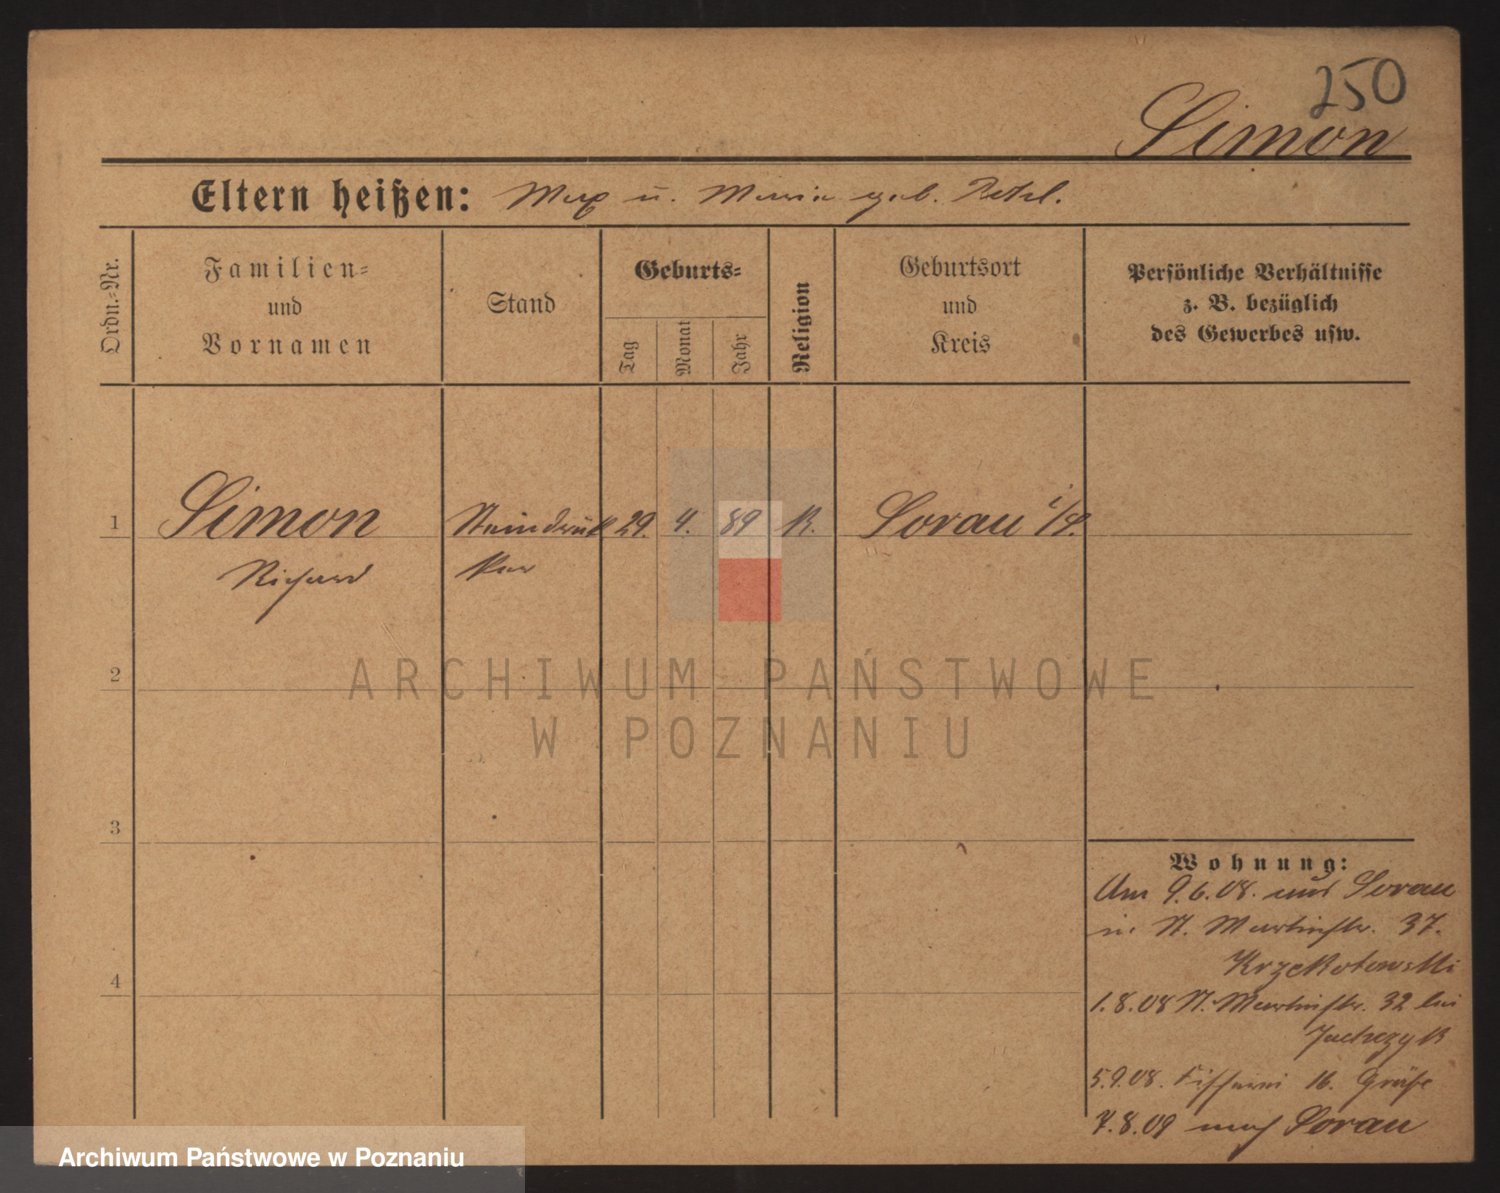 250
Simon
Eltern heißen: Max u. Maria geb.
Ordn.-Nr.
Familien-
und
Vornamen
Stand
Geburts-
Tag
Monat
Jahr
Religion
Geburtsort
und
Kreis
Persönliche Verhältnisse
z. B. bezüglich
des Gewerbes usw.
1 Simon Steindruk 29. 4. 89 K. Sorau i/
Richard ker
2
ARCHIWUM PAŃSTWOWE
W POZNANIU
3
4
Wohnung:
Am 9.6.08. aus Sorau
in St. Martinstr. 37.
Krzekotowski
1.8.08 St. Martinstr. 32 bei
5.9.08. Fischerei 16.
7.8.09 nach Sorau
Archiwum Państwowe w Poznaniu